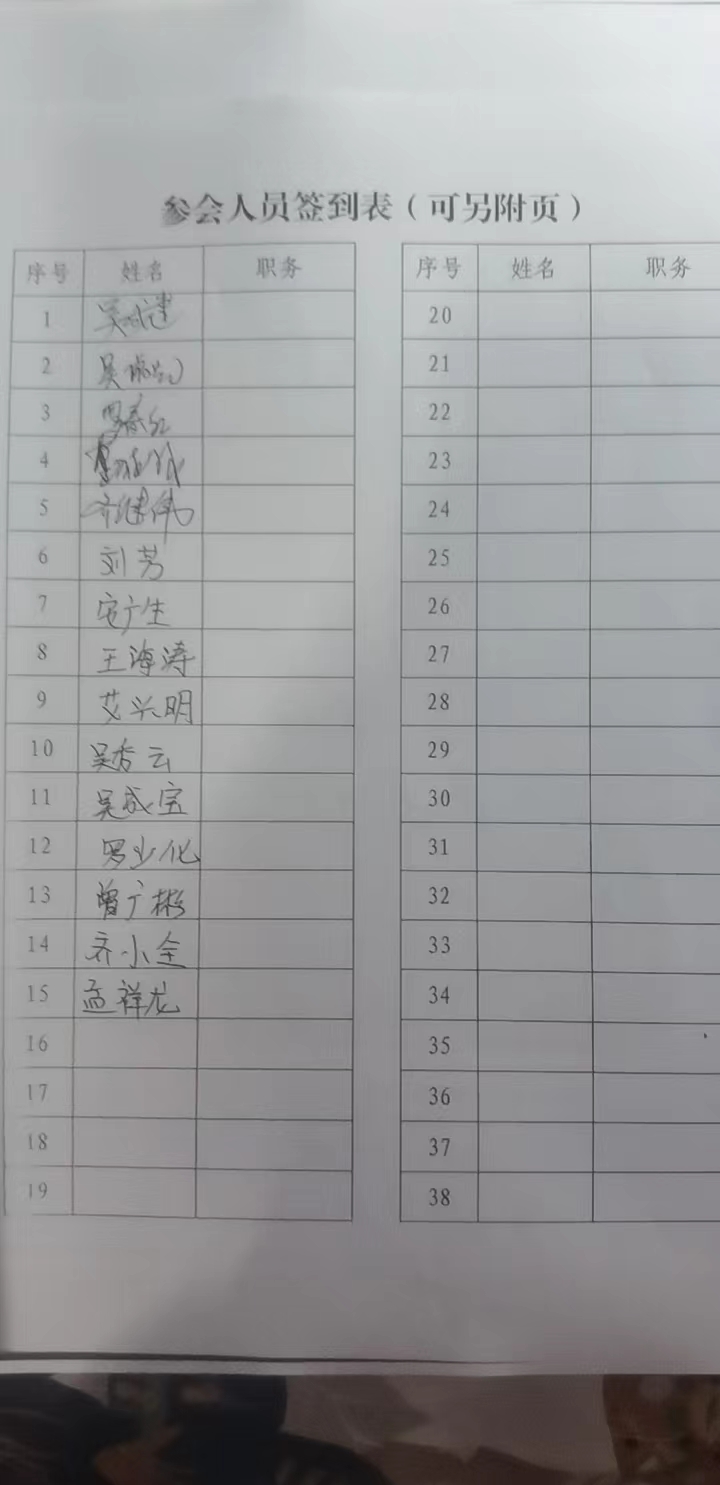 参会人员签到表（可另附页）
序号 姓名 职务 序号 姓名 职务
1 吴 建 20
2 吴 21
3 罗春红 22
4 23
5 齐继伟 24
6 刘芳 25
7 安广生 26
8 王海涛 27
9 艾兴明 28
10 吴秀云 29
11 吴成宝 30
12 罗少化 31
13 曾广彬 32
14 齐小全 33
15 孟祥龙 34
16 35
17 36
18 37
19 38